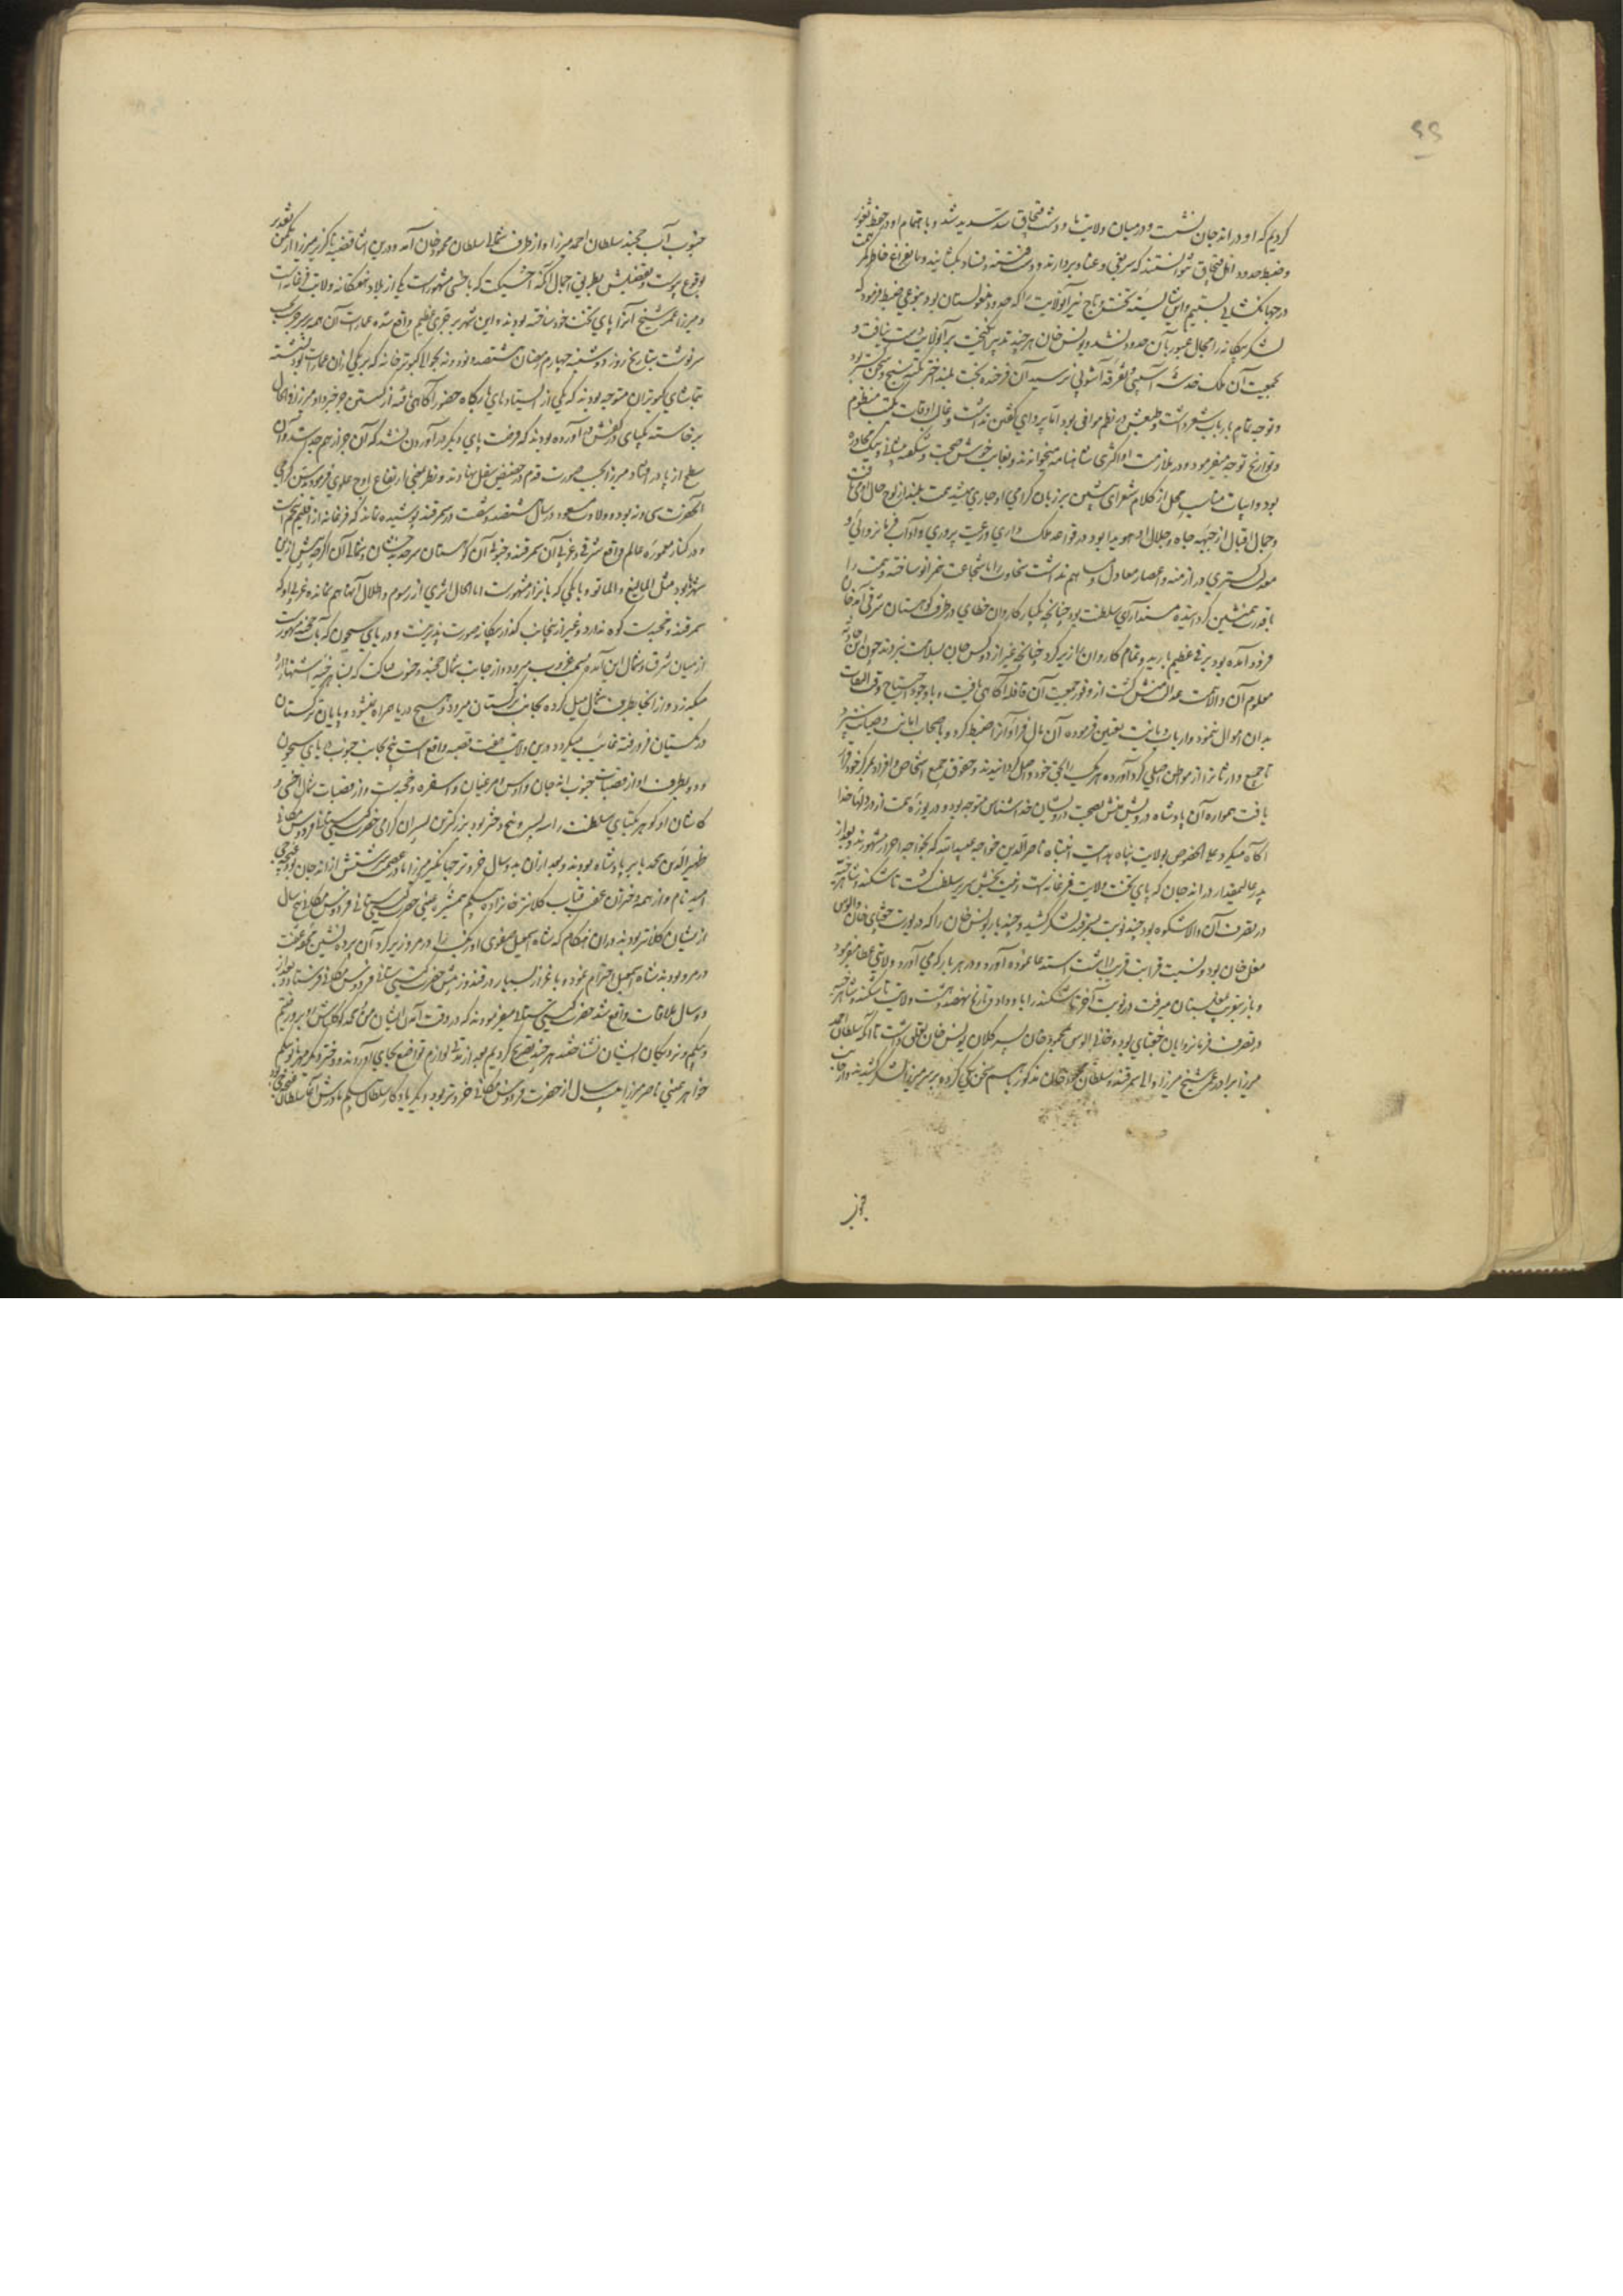 ۶۶
کردیم که او در اندجان نشست و در میان ولایت ما و دشت قبچاق سد سدید شد و باهتمام او در حفظ ثغور
و ضبط حدود اهل قبچاق نتوانستند که سر بغی و عناد بردارند و دست فتنه و فساد بگشایند و ما بفراغ خاطر کمر همت
در جهانگشایی بستیم و این شایسته تخت و تاج نیز آنولایت را که حدود مغولستان بود بنوعی ضبط فرمود که
لشکر بیگانه را مجال عبور بآن حدود نشد و یونس خان هر چند تدبیر انگیخت بر آنولایت دست نیافت و
بجمعیت آن ملک خدشه آسیبی و تفرقه آشوبی نرسید آن فرخنده بخت بلند اختر نکته سنج و سخن گستر بود
و توجه تمام بارباب شعر داشت و طبعش در نظم موافق بود اما پروای گفتن نداشت و غالب اوقات بکتب منظوم
و تواریخ توجه میفرمود و در ملازمت او اکثری شاهنامه میخواندند و بغایت خوش صحبت و شگفته پیشانی و نیک محاوره
بود و ابیات مناسب محل از کلام شعرای پیشین بر زبان گرامی او جاری میشد همت بلند از لوح حال او می تافت
و جمال اقبال از جبهه جاه و جلال او هویدا بود در قواعد ملک داری و رعیت پروری و آداب فرمانروائی و
معدلت گستری در ازمنه و اعصار معادل و مساهم نداشت سخاوت را با شجاعت همزانو ساخته و همت را
با قدرت همنشین گردانیده مسند آرای سلطنت بود چنانچه یکبار کاروان خطای در طرف کوهستان شرقی اندجان
فرود آمده بود برفی عظیم بارید و تمام کاروان را زیر کرد چنانچه غیر از دو کس جان بسلامت نبردند چون این حادثه
معلوم آن والا همت عدالت منش گشت از وفور جمعیت آن قافله آگاهی یافت و با وجود احتیاج وقت التفات
بدان اموال ننمود و ارباب دیانت تعیین فرموده آن مال فراوان را ضبط کرد و باصحاب امانت و صیانت سپرد
تا جمیع وارثانرا از مواطن اصلی گرد آورده هر یک را بحق خود واصل گردانیدند و حقوق جمیع اشخاص و افراد بمرکز خود قرار
یافت همواره آن پادشاه درویش منش بصحبت درویشان خداشناس متوجه بود و دریوزه همت از در دلهای خدا
آگاه میکرد علی الخصوص بولایت پناه هدایت انتباه ناصر الدین خواجه عبید الله که بخواجه احرار مشهورند و بعد از
پدر عالیمقدار در اندجان که پای تخت ولایت فرغانه است زینت بخش سریر سلطنت گشت تاشکند و شاهرخیه
در تصرف آن والا شکوه بود چند نوبت بسمرقند لشکر کشید و چند بار یونس خان را که در یورت چغتای خان و الوس
مغل خان بود و نسبت قرابت قریب داشت استدعا نموده آورد و در هر بار که می آورد ولایتی عطا میفرمود
و باز بتقریبی بمغلستان میرفت در نوبت آخر تاشکند را باو داد و تا تاریخ نهصد و هشت ولایت تاشکند و شاهرخیه
در تصرف فرمانروایان چغتای بود و خانی الوس بمحمود خان پسر کلان یونس خان تعلق داشت تا آنکه سلطان احمد
میرزا برادر عمر شیخ میرزا والی سمرقند و سلطان محمود خان مذکور با هم سخن یکی کرده بر سر میرزا لشکر کشیدند و از جانب
جنوب
جنوب آب خجند سلطان احمد میرزا و از طرف شمالی سلطان محمود خان آمد و درین اثنا قضیه ناگزیر میرزا از مکمن تقدیر
بوقوع پیوست و تفصیلش بطریق اجمال آنکه اخسیکت که باخسی مشهور است یکی از بلاد هفتگانه ولایت فرغانه است
و میرزا عمر شیخ آنرا پای تخت خود ساخته بودند و این شهر بر جری عظیم واقع شده عمارت آن همه بر سر جر بحسب
سرنوشت بتاریخ روز دوشنبه چهارم رمضان هشتصد و نود و نه بحوالی کبوتر خانه که بر یکی از آن عمارات بود نشسته
تماشای کبوتران متوجه بودند که یکی از ایستادهای بارگاه حضور آگاهی یافته از گسستن جر خبر داد میرزا فی الحال
برخاسته یکپای در کفش در آورده بودند که فرصت پای دیگر در آوردن نشد که آن جر از هم جدا شد و آن
سطح از پا در افتاد میرزا بحسب صورت قدم در حضیض سفل نهادند و نظر بمعنی ارتفاع اوج علوی فرمودند سن گرامی
آنحضرت سی و نه بود و ولادت مسعود در سال هشتصد و شصت در سمرقند پوشیده نماند که فرغانه از اقلیم پنجم است
و در کنار معموره عالم واقع شرقی آن و غربی آن سمرقند و جنوبی آن کوهستان سرحد بدخشان و شمالی آن اگرچه پیش ازین
شهرها بود مثل المالیغ و الماتو و یانگی که باترار مشهور است اما الحال اثری از رسوم و اطلال آنها هم نمانده غربی او که
سمرقند و خجند است کوه ندارد و غیر ازین جانب گذر بیگانه صورت پذیر نیست و دریای سیحون که بآب خجند مشهور است
از میان شرق و شمال این آمده بسمت غروب میرود و از جانب شمال خجند و جنوب فناکت که بشاهرخیه اشتهار دارد
میگذرد و از آنجا بطرف شمال میل کرده بجانب ترکستان میرود و هیچ دریا همراه نمیشود و پایان ترکستان
در ریگستان فرو رفته غایب میگردد و درین ولایت هفت قصبه واقع است پنج بجانب جنوب دریای سیحون
و دو بطرف او از قصبات جنوب اندجان و اوش و مرغینان و اسفره و خجند است و از قصبات شمال اخسی و
کاشان او کوهر یکتای سلطنت را سه پسر و پنج دختر بود بزرگترین پسران گرامی حضرت گیتی ستانی فردوس مکانی
ظهیر الدین محمد بابر پادشاه بودند و بعد ازان بدو سال خردتر جهانگیر میرزا مادر عصمت سرشتش از اندجان بود غنچه چی
از ایشان کلانتر بودند دران هنگام که شاه اسمعیل صفوی اوزبک را در مرو زیر کرد آن پرده نشین حجره عفت
در مرو بودند شاه اسمعیل احترام نموده باعزاز بسیار در قندوز پیش حضرت گیتی ستانی فردوس مکانی فرستاد و بعد از
ده سال ملاقات واقع شد حضرت گیتی ستانی میفرمودند که در وقت آمدن ایشان من و محمدی کوکلتاش روبرو رفتیم
بیگم و نزدیکان ایشان نشناختند هر چند تصریح کردیم بعد از مدتی لوازم تواضع بجای آوردند و دختر دیگر مهربانو بیگم
خواهر عینی ناصر میرزا هشت سال از حضرت فردوس مکانی خردتر بود دیگر یادگار سلطان بیگم مادرش آغا سلطان غنچه چی بود